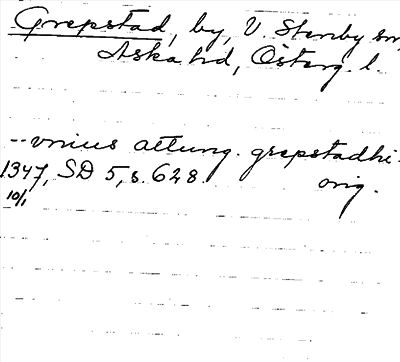 Grepstad, by, V. Stenby sn,
Aska hd, Österg. l.
-- vnius attung. grepstadhi.
1347, SD 5, s. 628. orig.
10/1